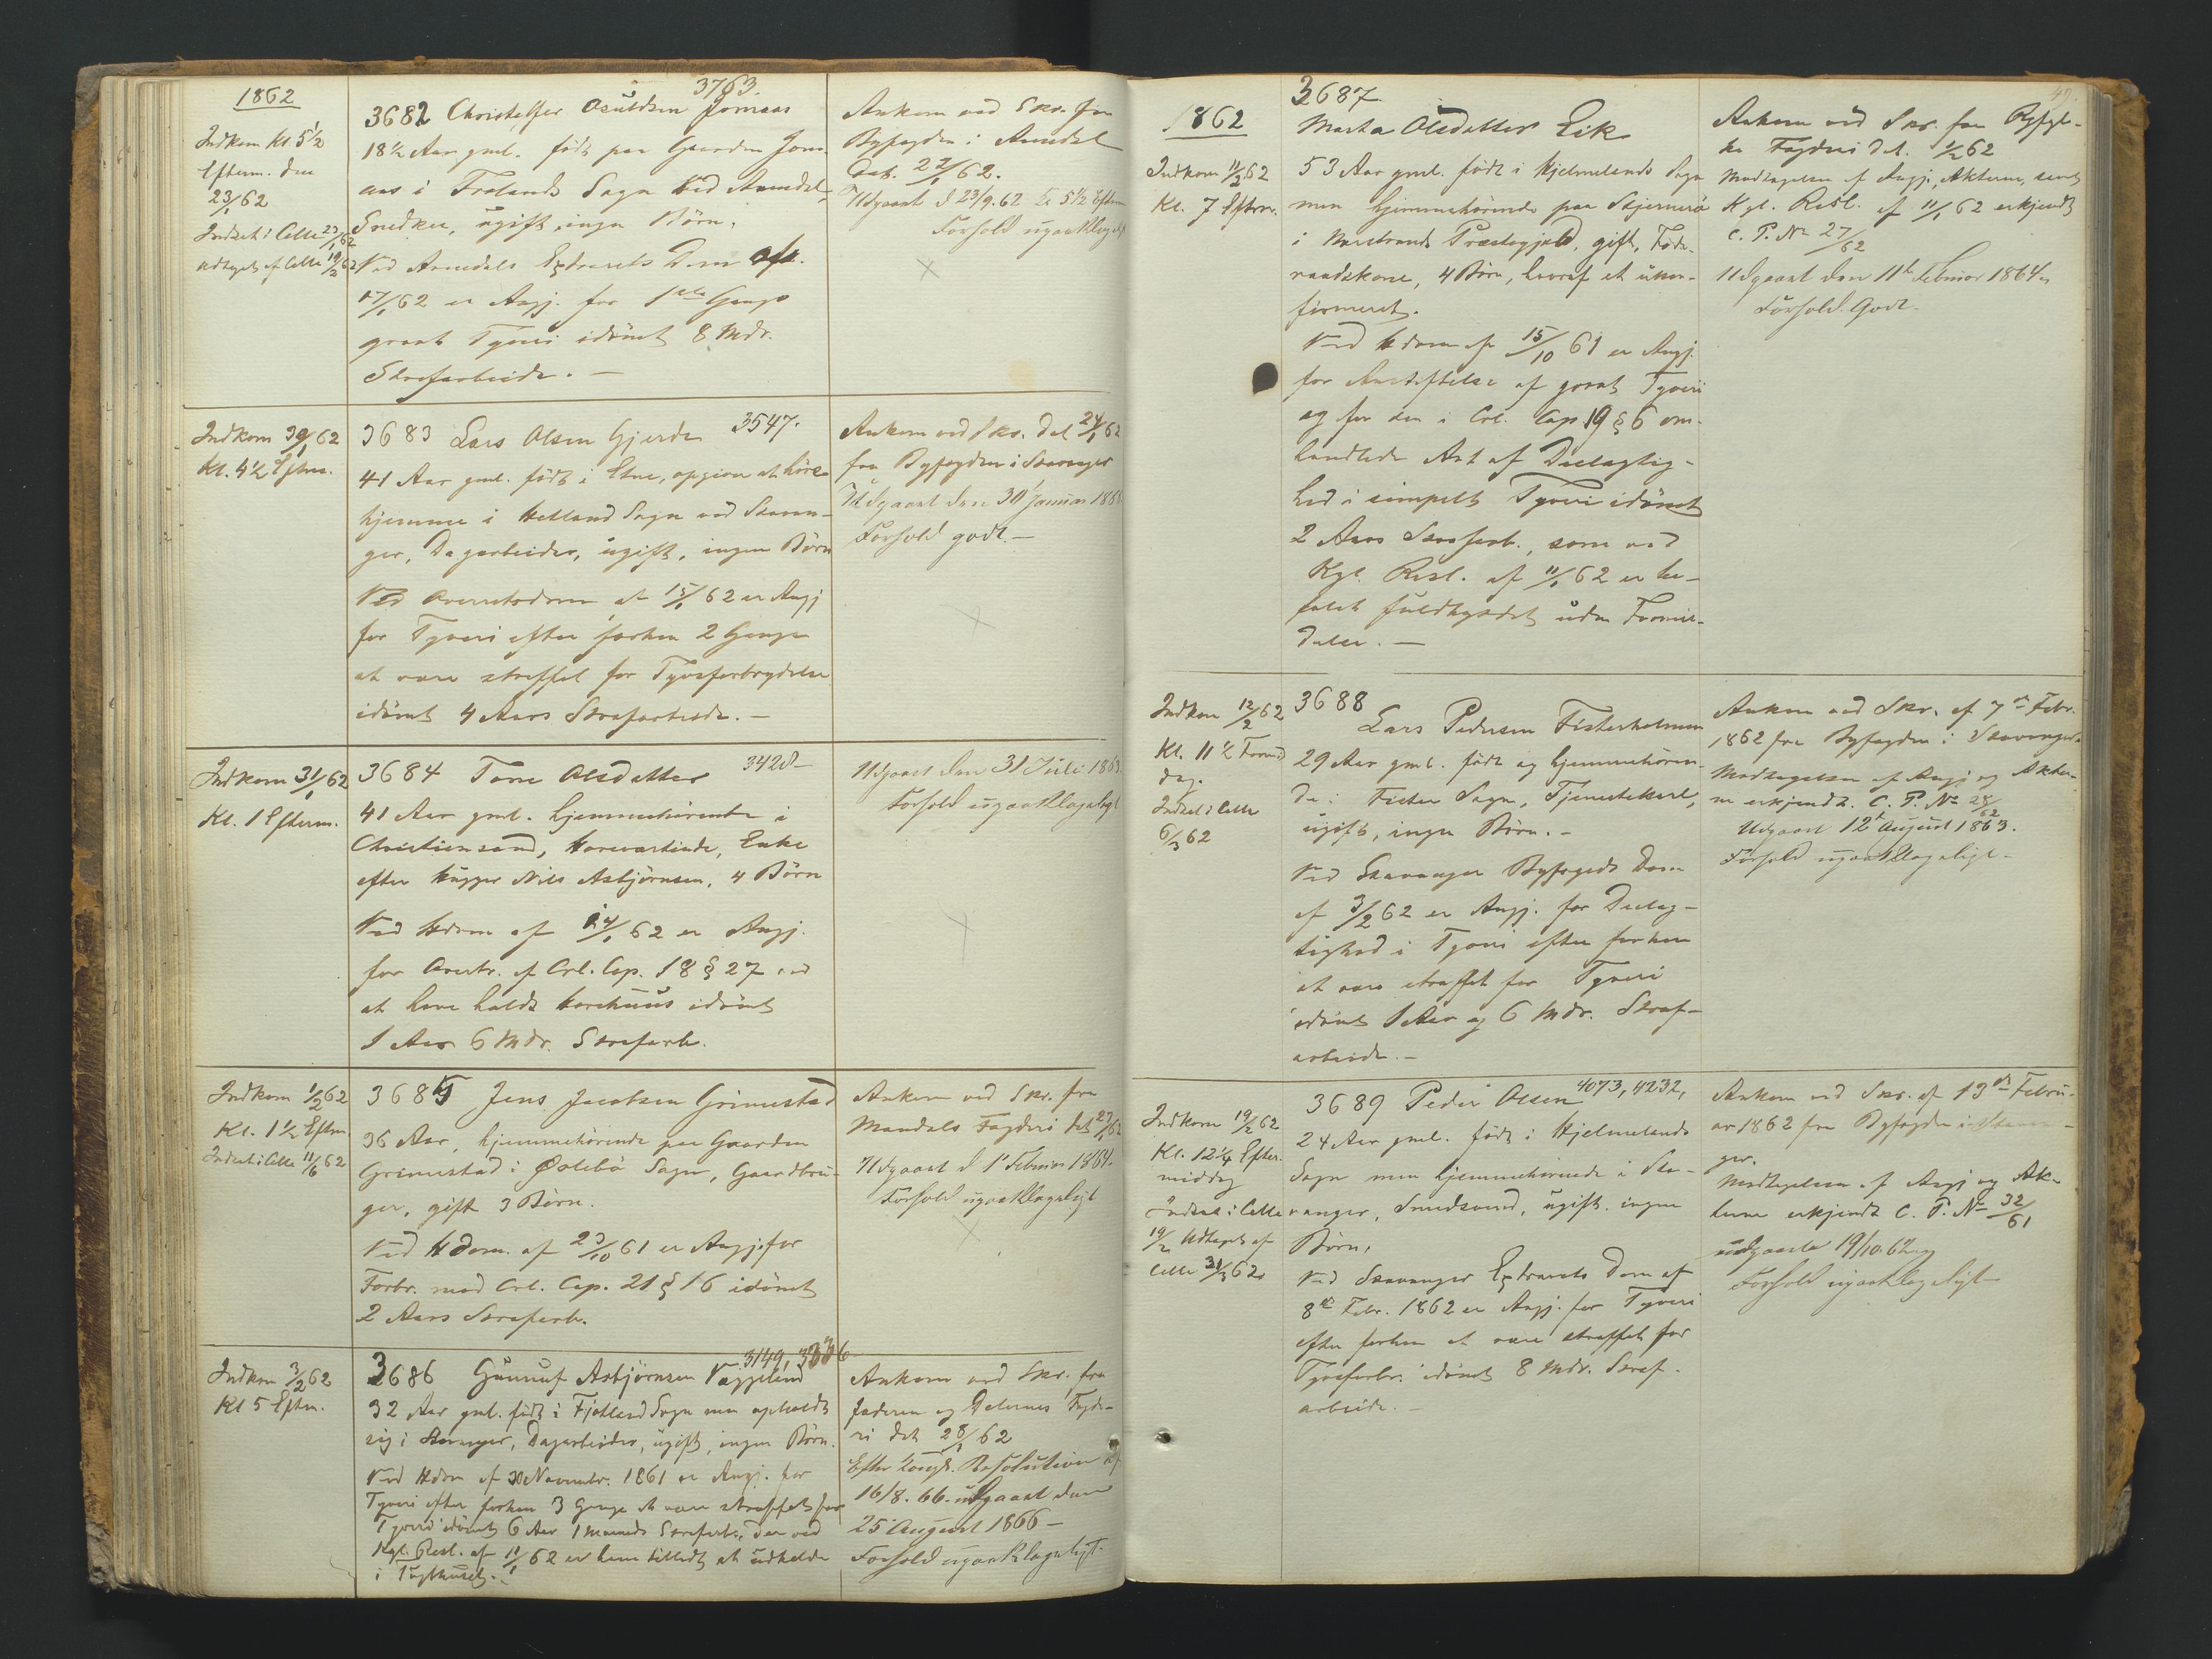 1862
Indkom Kl. 5½
Efterm. den
23/1 62
Indsat i Celle 23/1 62
Udtaget af Celle 19/2 62
3763.
3682 Christoffer Osuldsen Jomaas
18½ Aar gml. født paa Gaarden Jom-
aas i Frolands Sogn ved Arendal,
Snedker, ugift, ingen Børn.
Ved Arendals Extrarets Dom afs.
17/1 62 er Angj. for 1ste Gangs
grovt Tyveri idømt 8 Mdr.
Strafarbeide. —
Ankom ved Skr. fra
Byfogden i Arendal
Dat. 22/1 62.
Udgaaet d 23/9. 62 Kl 5½ Efterm
Forhold upaaklageligt
Indkom 30/1 62
Kl. 4½ Efterm.
3683 Lars Olsen Gjerde 3547.
41 Aar gml. født i Etne, opgiver at høre
hjemme i Hetland Sogn ved Stavan-
ger, Dagarbeider, ugift, ingen Børn
Ved Overretsdom af 15/1 62 er Angj
for Tyveri efter forhen 2 Gange
at være straffet for Tyvsforbrydelse
idømt 4 Aars Strafarbeide. —
Ankom ved Skr. dat 24/1 62
fra Byfogden i Stavanger
Udgaaet den 30 Januar 186
Forhold godt. —
Indkom 31/1 62
Kl. 1 Efterm.
3684 Tone Olsdatter 3428 —
41 Aar gml. hjemmehørende i
Christiansand, Horeværtinde, Enke
efter Hugger Nils Asbjørnsen, 4 Børn
Ved Hdom af 24/1 62 er Angj.
for Overtr. af Crl. Cap. 18 § 27 ved
at have holdt Horehuus idømt
1 Aar 6 Mdr. Strafarb.
Udgaaet den 31 Juli 1863
Forhold upaaklageligt
Indkom 1/2 62
Kl. 1½ Eftm
Indsat i Celle 11/6 62
3685 Jens Jacobsen Grimestad
36 Aar, hjemmehørende paa Gaarden
Grimestad i Øslebø Sogn, Gaardbru-
ger, gift 3 Børn.
Ved Hdom. af 23/10 61 er Angj. for
Forbr. mod Crl. Cap. 21 § 16 idømt
2 Aars Strafarb.
Ankom ved Skr. fra
Mandals Fogderi dat 27/1 62
Udgaaet d 1' Februar 1864.
Forhold upaaklageligt
Indkom 3/2 62
Kl 5 Eftm.
3149, 3336
3686 Gunuf Asbjørnsen Væggeland
32 Aar gml. født i Fjotland Sogn men opholdt
sig i Stavanger, Dagarbeider, ugift, ingen Børn.
Ved Hdom af 30 Novembr. 1861 er Angj. for
Tyveri efter forhen 3 Gange at være straffet for
Tyveri idømt 6 Aar 1 Maaneds Strafarb., der ved
Kgl. Resl. af 11/1 62 er ham tilladt at udholde
i Tugthuset. —
Ankom ved Skr. fra
Jæderen og Dalernes Fogde-
ri dat 28/1 62
Efter Kongl. Resolution af
16/8. 66. udgaaet den
25 August 1866 —
Forhold upaaklageligt.
49.
1862
Indkom 11/2 62
Kl. 7 Efterm.
3687
Marta Olsdatter Eik
53 Aar gml. født i Hjelmelands Sogn
men hjemmehørende paa Skjernerø
i Præstegjeld, gift, Føde-
raadskone, 4 Børn, hvoraf et ukon-
firmeret.
Ved Hdom af 15/10 61 er Angj.
for Anstiftelse af grovt Tyveri
og for den i Crl. Cap 19 § 6 om-
handlede Art af Deelagtig-
hed i simpelt Tyveri idømt
2 Aars Strafarb., som ved
Kgl. Resl. af 11/1 62 er be-
falet fuldbyrdet uden Formil-
delse. —
Ankom ved Skr. fra Ryfyl-
ke Fogderi dat. 1/2 62
Modtagelsen af Angj., Akterne, samt
Kgl. Resl. af 11/1 62 erkjendt
C. P. No 27/62
Udgaaet den 11te Februar 1864
Forhold Godt.
Indkom 12/2 62
Kl. 11½ Formid
dag.
Indsat i Celle
6/3 62
3688
Lars Pedersen Fisterholmen
29 Aar gml. født og hjemmehøren-
de i Fister Sogn, Tjenestekarl,
ugift, ingen Børn. -
Ved Stavanger Byfogeds Dom
af 3/2 62 er Angj. for Deelag-
tighed i Tyveri efter forhen
at være straffet for Tyveri
idømt 1 Aar og 6 Mdr. Straf-
arbeide. —
Ankom ved Skr. af 7de Febr.
1862 fra Byfogden i Stavanger
Modtagelsen af Angj og Akter-
ne erkjendt. C. P. No 28/62
Udgaaet 12te August 1863.
Forhold upaaklageligt —
Indkom 19/2 62
Kl. 12¼ Efter-
middag
Indsat i Celle
19/2 Udtaget af
Celle 31/3 62
3689 Peder Olsen 4073, 4232,
24 Aar gml. født i Hjelmelands
Sogn men hjemmehørende i Sta-
vanger, Smedsvend, ugift, ingen
Børn.
Ved Stavanger Extrarets Dom af
8de Febr. 1862 er Angj. for Tyveri
efter forhen at være straffet for
Tyvsforbr. idømt 8 Mdr. Straf-
arbeide. —
Ankom ved Skr. af 13de Febru-
ar 1862 fra Byfogden i Stavan-
ger.
Modtagelsen af Angj og Ak-
terne erkjendt C. P. No 32/61
udgaaet 19/10. 62
Forhold upaaklageligt —